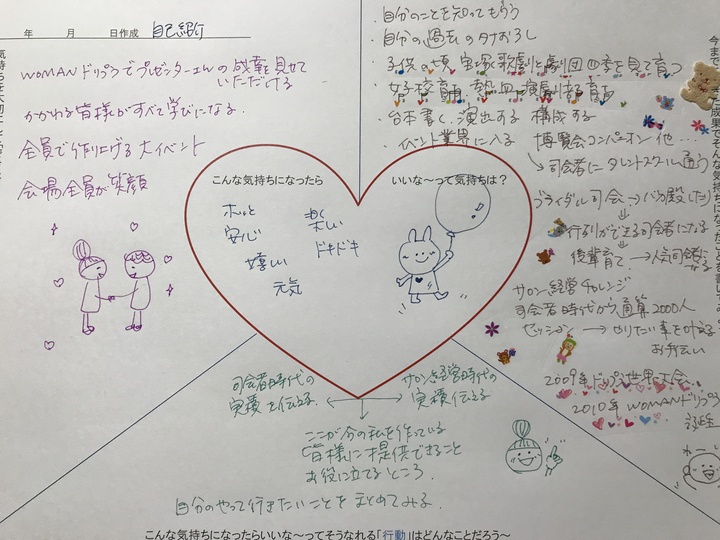 年 月 日作成 自己紹介
WOMANドリプラでプレゼンターさんの成長見せて
いただける
かかわる皆様がすべて学びになる
全員で作り上げる大イベント
会場全員が笑顔
自分のことを知ってもらう
自分の過去のタナおろし
子供の頃 宝塚歌劇と劇団四季を見て育つ
女子校育ち 熱血 演劇
台本書く、演出する 構成する
イベント業界に入る 博覧会コンパニオン他…
司会者にタレントスクール通う
ブライダル司会→バカ殿したり
行列ができる司会者になる
後輩育て→人気司会者
サロン経営チャレンジ
司会者時代から通算2000人
セッション→やりたい事を叶える
お手伝い
2009年ドリプラ世界大会…
2010年WOMANドリプラ
こんな気持ちになったら いいな〜って気持ちは？
ホッと 楽しい
安心 ドキドキ
嬉しい
元気
司会者時代の
実績を伝える
サロン経営時代の
実績伝える
ここが今の私を作っている
皆様に提供できること
お役に立てるところ
自分のやって行きたいことをまとめてみる
こんな気持ちになったらいいな〜ってそうなれる「行動」はどんなことだろう〜